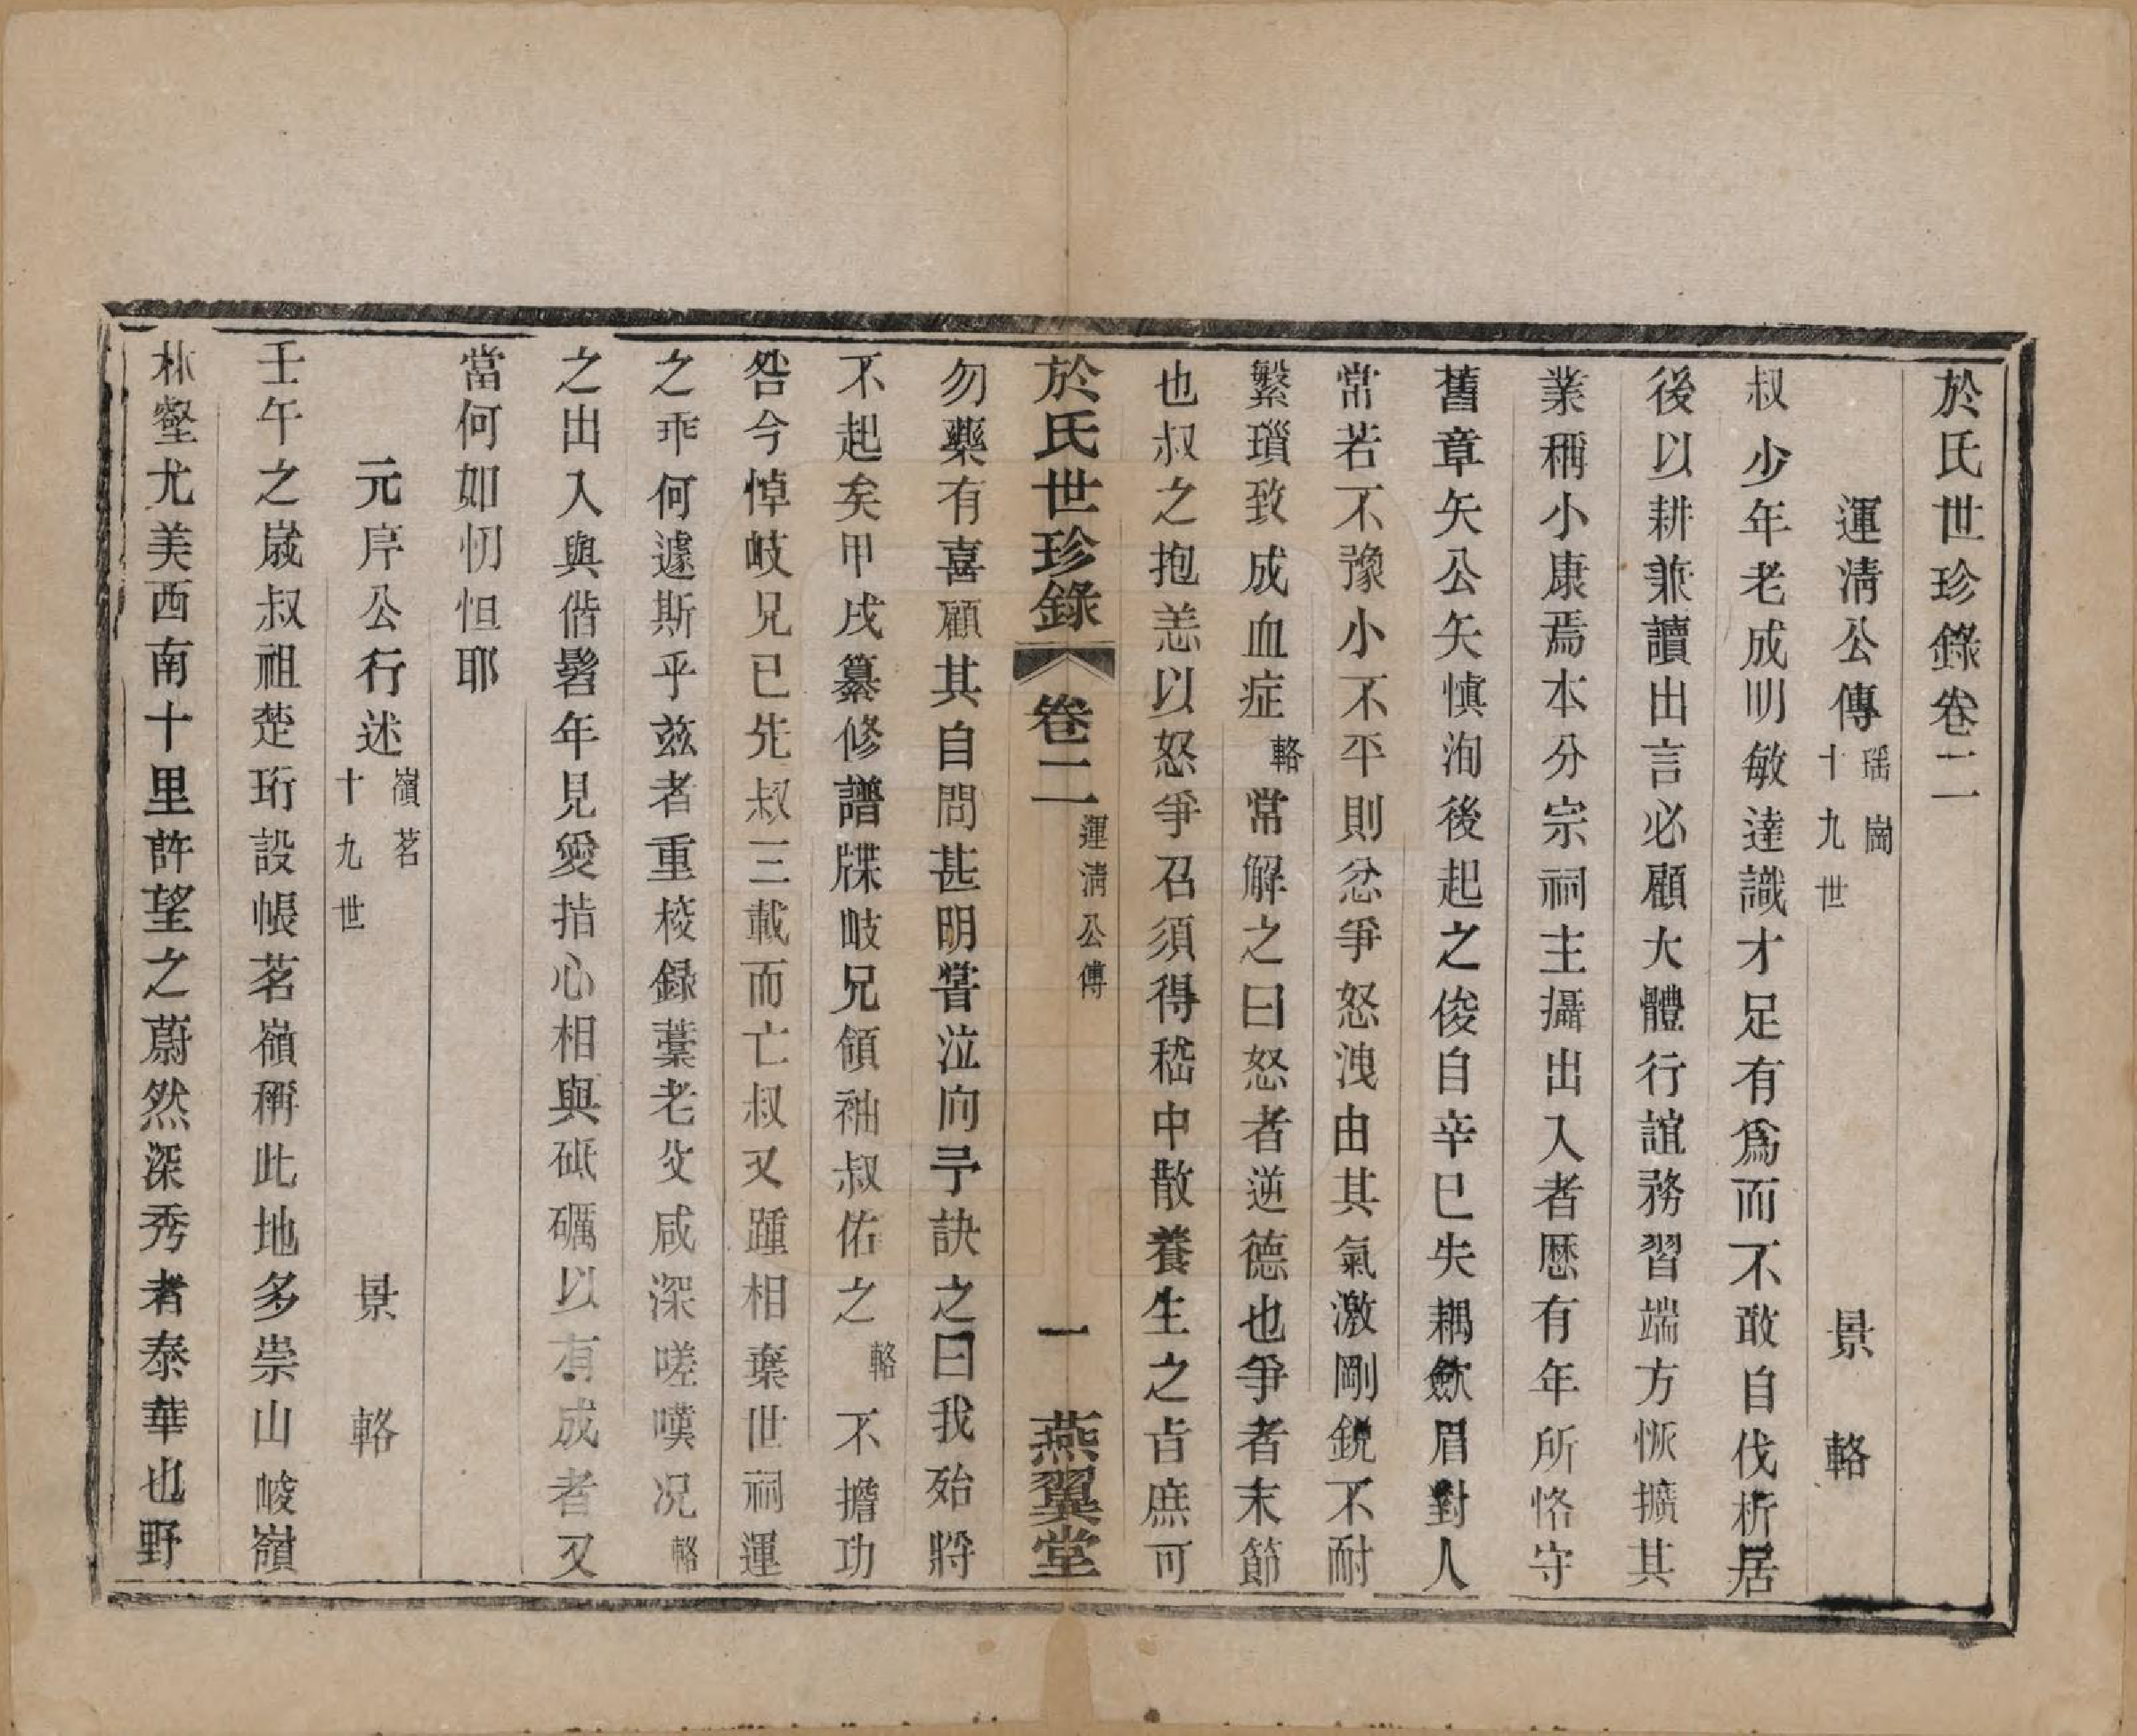 於氏世珍錄卷二
運淸公傳 瑶崗 十九世 景輅
叔少年老成明敏達識才足有爲而不敢自伐析居
後以耕兼讀出言必顧大體行誼務習端方恢擴其
業稱小康焉本分宗祠主攝出入者歷有年所恪守
舊章矢公矢愼洵後起之俊自辛巳失耦歛眉對人
常若不豫小不平則忿爭怒洩由其氣激剛銳不耐
繫瑣致成血症輅常解之曰怒者逆德也爭者末節
也叔之抱恙以怒爭召須得嵇中散養生之旨庶可
於氏世珍錄 卷二 運淸公傳 一 燕翼堂
勿藥有喜顧其自問甚明嘗泣向予訣之曰我殆將
不起矣甲戌纂修譜牒岐兄領袖叔佑之輅不擔功
咎今悼岐兄已先叔三載而亡叔又踵相棄世祠運
之乖何遽斯乎兹者重校錄藁老父咸深嗟嘆况輅
之出入與偕髫年見愛指心相與砥礪以有成者又
當何如忉怛耶
元序公行述 嶺茗 十九世 景輅
壬午之歲叔祖楚珩設帳茗嶺稱此地多崇山峻嶺
林壑尤美西南十里許望之蔚然深秀者泰華也野